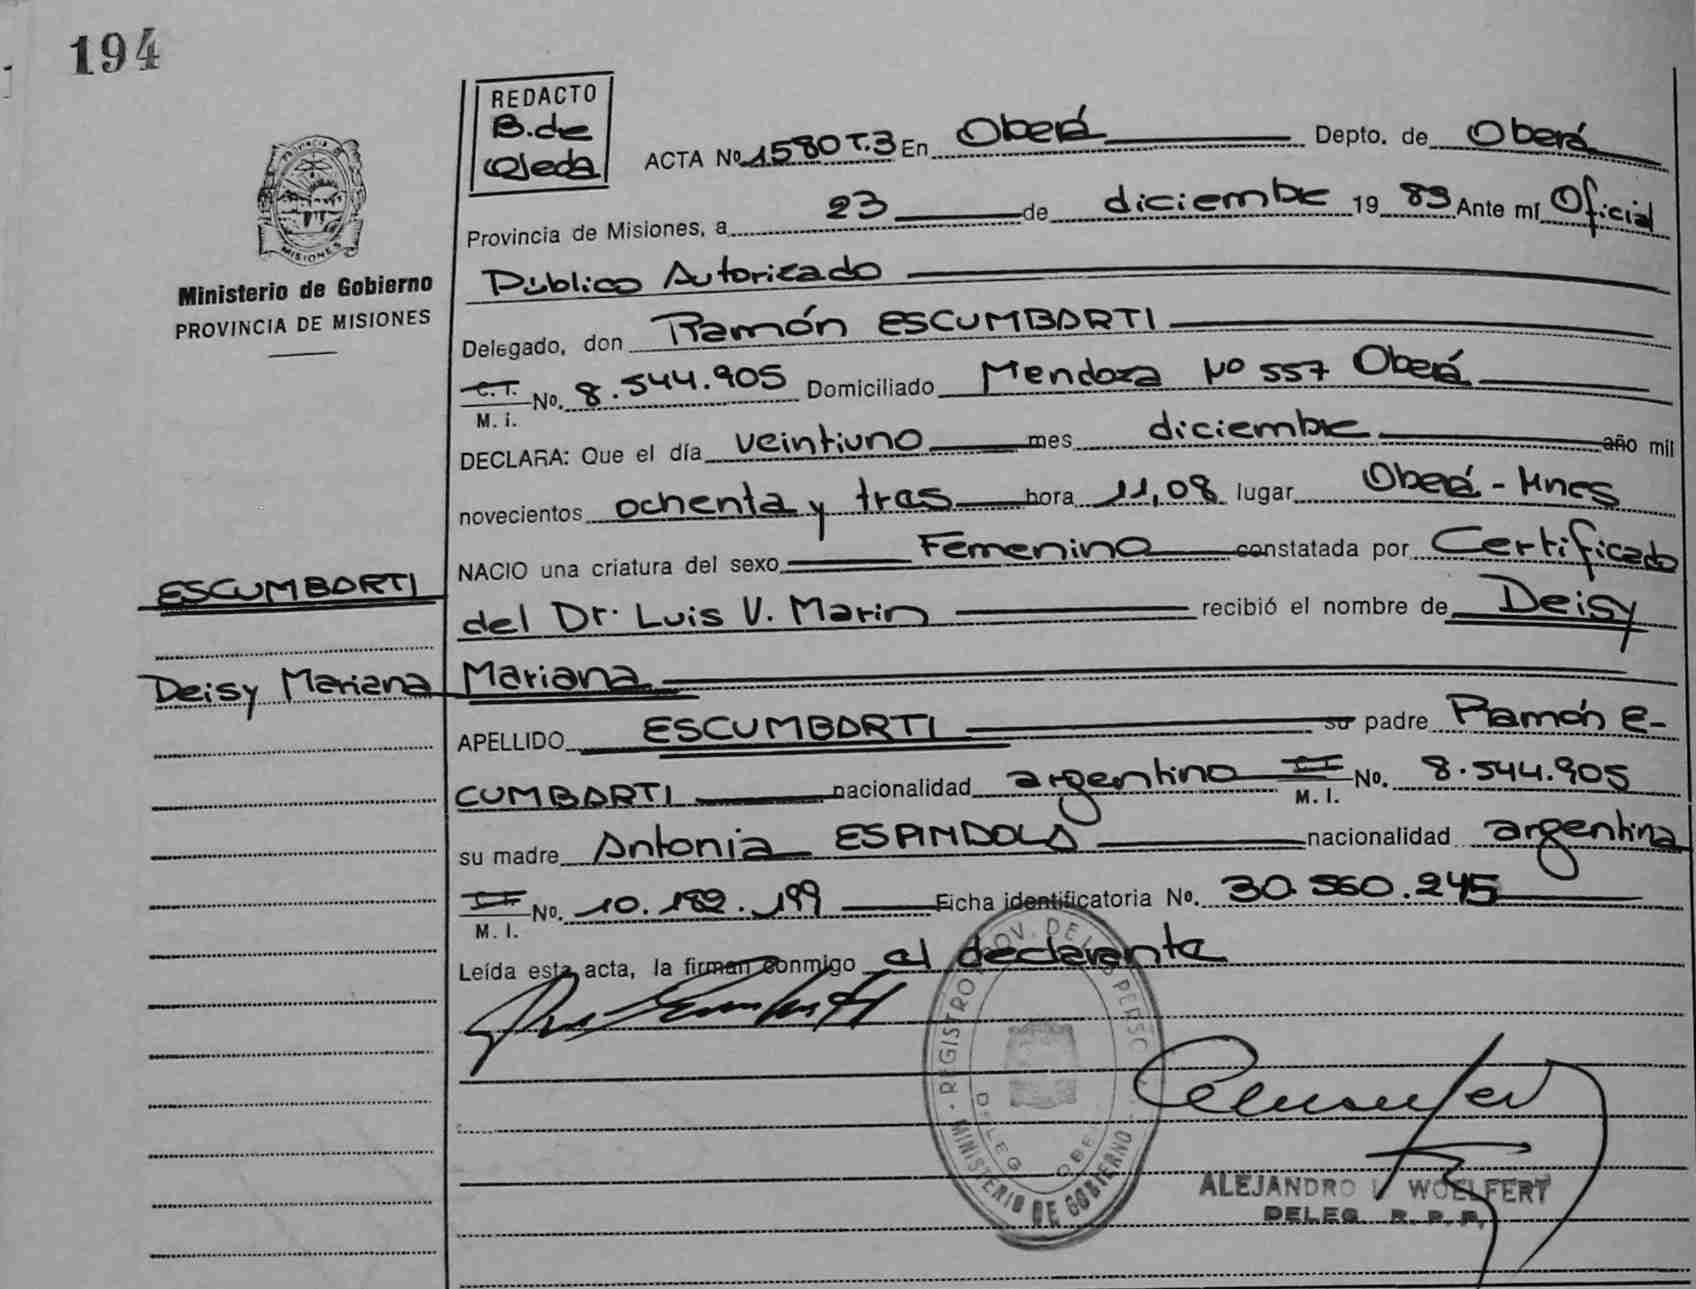 194
REDACTO
B. de
Ojeda
ACTA No 1580 T.3 En Oberá Depto. de Oberá
Provincia de Misiones, a 23 de diciembre 19 83 Ante mí Oficial
Público Autorizado
PROVINCIA DE MISIONES
Ministerio de Gobierno
PROVINCIA DE MISIONES
Delegado, don Ramón ESCUMBARTI
C.I. No. 8.544.905 Domiciliado Mendoza No 557 Oberá
M. I.
DECLARA: Que el día veintiuno mes diciembre año mil
novecientos ochenta y tres hora 11,08 lugar Oberá - Mnes
NACIO una criatura del sexo Femenino constatada por Certificado
ESCUMBARTI
del Dr. Luis V. Marin recibió el nombre de Deisy
Deisy Mariana
Mariana
APELLIDO ESCUMBARTI su padre Ramón E-
CUMBARTI nacionalidad argentino C.I. No. 8.544.905
M. I.
su madre Antonia ESPINDOLA nacionalidad argentina
C.I. No. 10.182.199 Ficha identificatoria No. 30.560.245
M. I.
Leída esta acta, la firman conmigo el declarante
REGISTRO PROV. DE LAS PERSO
DELEG OBE
MINISTERIO DE GOBIERNO
ALEJANDRO WOELFERT
DELEG. R. P. P.